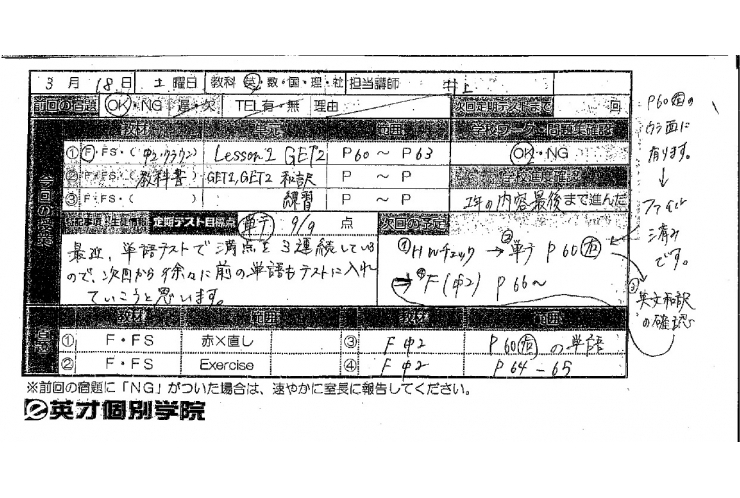 3月18日 土曜日 教科 英・数・国・理・社 担当講師 井上
前回の宿題 OK・NG 遅・欠 TEL有・無 理由 次回定期テストまで 回
教材 単元 範囲 学校ワーク・問題集確認
① F・FS・(中2・クラウン) Lesson1 GET2 P60 ～ P63 OK・NG
② F・FS・(教科書) GET1,GET2 和訳 P ～ P 学校進度確認
③ F・FS・( 練習 P ～ P 1年の内容最後まで進んだ
定期テスト目標点 単テ 9/9 点 次回の予定
最近、単語テストで満点を3連続している
ので、次回から徐々に前の単語もテストに入れ
ていこうと思います。
①HWチェック → ②単テ P60㊨
→ ④F(中2) P66～
P60㊨の
ウラ面に
有ります。
↓
ファイル
済み
です。
③英文和訳
の確認
教材 範囲 教材 範囲
① F・FS 赤×直し ③ F中2 P60㊨の単語
② F・FS Exercise ④ F中2 P64-65
※前回の宿題に「NG」がついた場合は、速やかに室長に報告してください。
英才個別学院